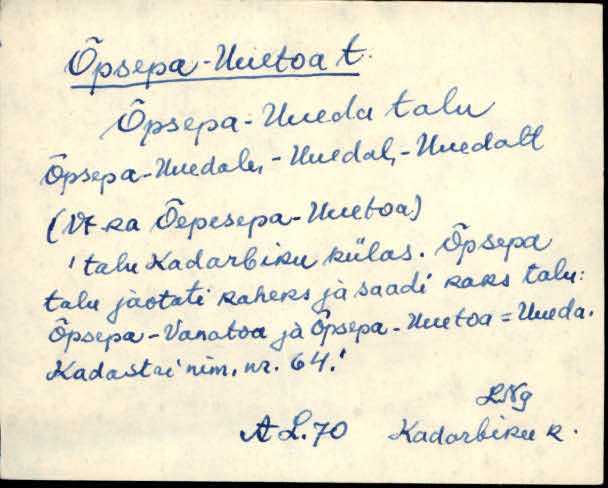 Õpsepa-Uuetoa t.
Õpsepa-Uueda talu
Õpsepa-Uuedale, -Uuedal, -Uuedalt
(Vt. ka Õepesepa-Uuetoa)
'talu Kadarbiku külas. Õpsepa
talu jäotati kaheks ja saadi kaks talu:
Õpsepa-Vanatoa ja Õpsepa-Uuetoa = Uueda.
Kadastri nim. nr. 64.'
LNg
A L. 70 Kadarbiku k.